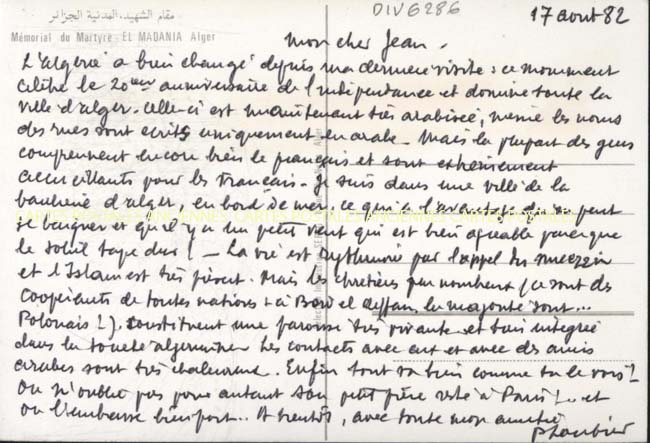 مقام الشهيد. المدنية الجزائر
DIV6286
17 août 82
Mémorial du Martyre - EL MADANIA Alger
Mon cher Jean.
L'Algérie a bien changé depuis ma dernière visite : ce monument
célèbre le 20ème anniversaire de l'indépendance et domine toute la
ville d'alger. Celle-ci est maintenant très arabisée, même les noms
des rues sont écrits uniquement en arabe. Mais la plupart des gens
comprennent encore très bien le français et sont extrêmement
accueillants pour les Français. Je suis dans une ville de la
banlieue d'alger, en bord de mer, ce qui a l'avantage qu'on peut
se baigner et qu'il y a un petit vent qui est bien agréable parce que
le soleil tape dur ! - La vie est rythmée par l'appel du muezzin
et l'Islam est très présent. Mais les chrétiens peu nombreux (ce sont des
coopérants de toutes nations : à Bord el la majorité sont...
Polonais !). constituent une paroisse très vivante et bien intégrée
dans la algérienne. Les contacts avec eux et avec des amis
arabes sont très chaleureux. Enfin tout va bien comme tu le vois !
On n'oublie pas pour autant son petit frère resté à Paris !.. et
on l'embrasse bien fort.. A bientôt, avec toute mon amitié
CARTES POSTALES ANCIENNES CARTES POSTALES ANCIENNES CARTES POSTALES